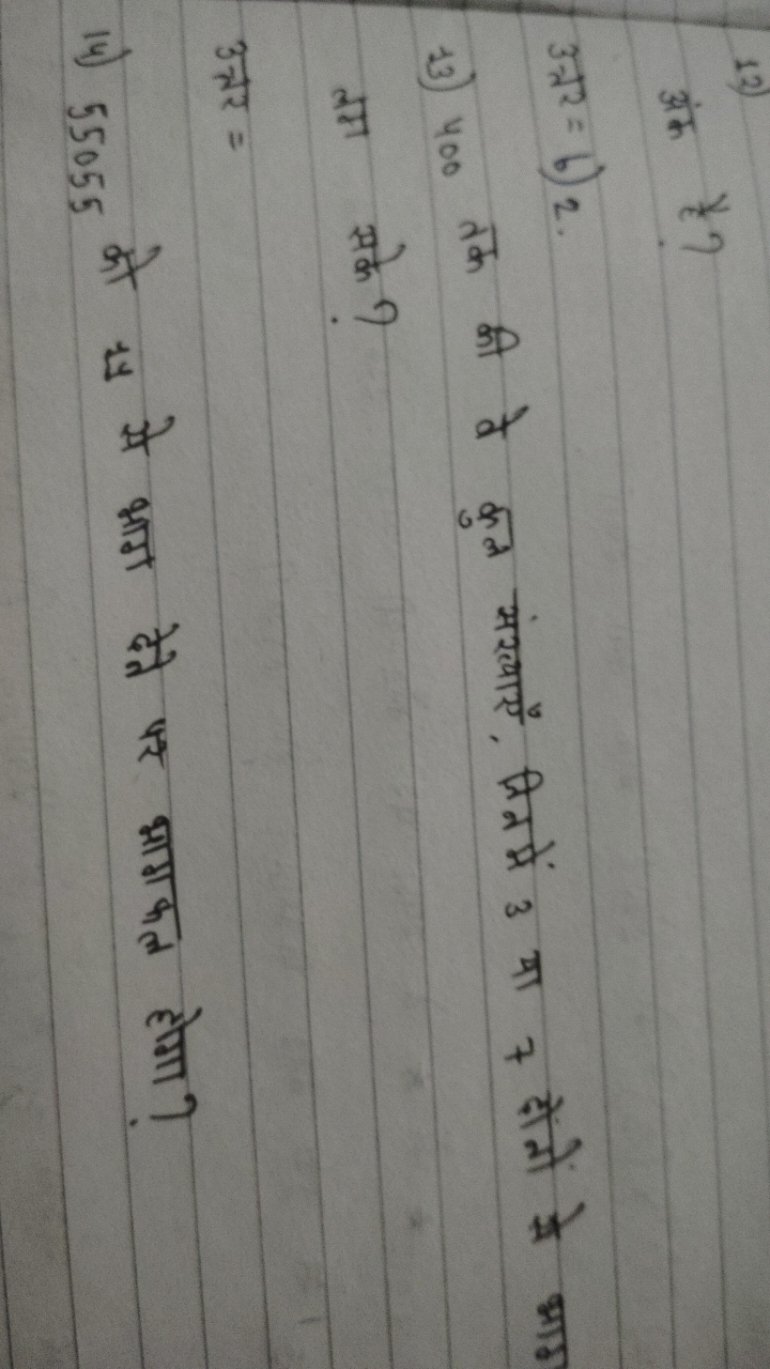 12)
अंक है?
उत्तर = b) 2.
13) 400 तक की वे कुल संख्याएँ, जिनमें 3 या 7 दोंनों से भाग
लग सके?
उत्तर =
14) 55055 को 11 से भाग देने पर भागफल होगा?